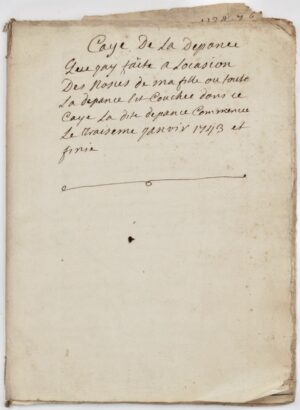 Caye De La Depance
Que jay faitte a Locasion
Des Noses de ma fille ou toute
La depance est Couchée dans ce
Caye La dite depance Commence
Le troiseme janvir 1743 et
finie